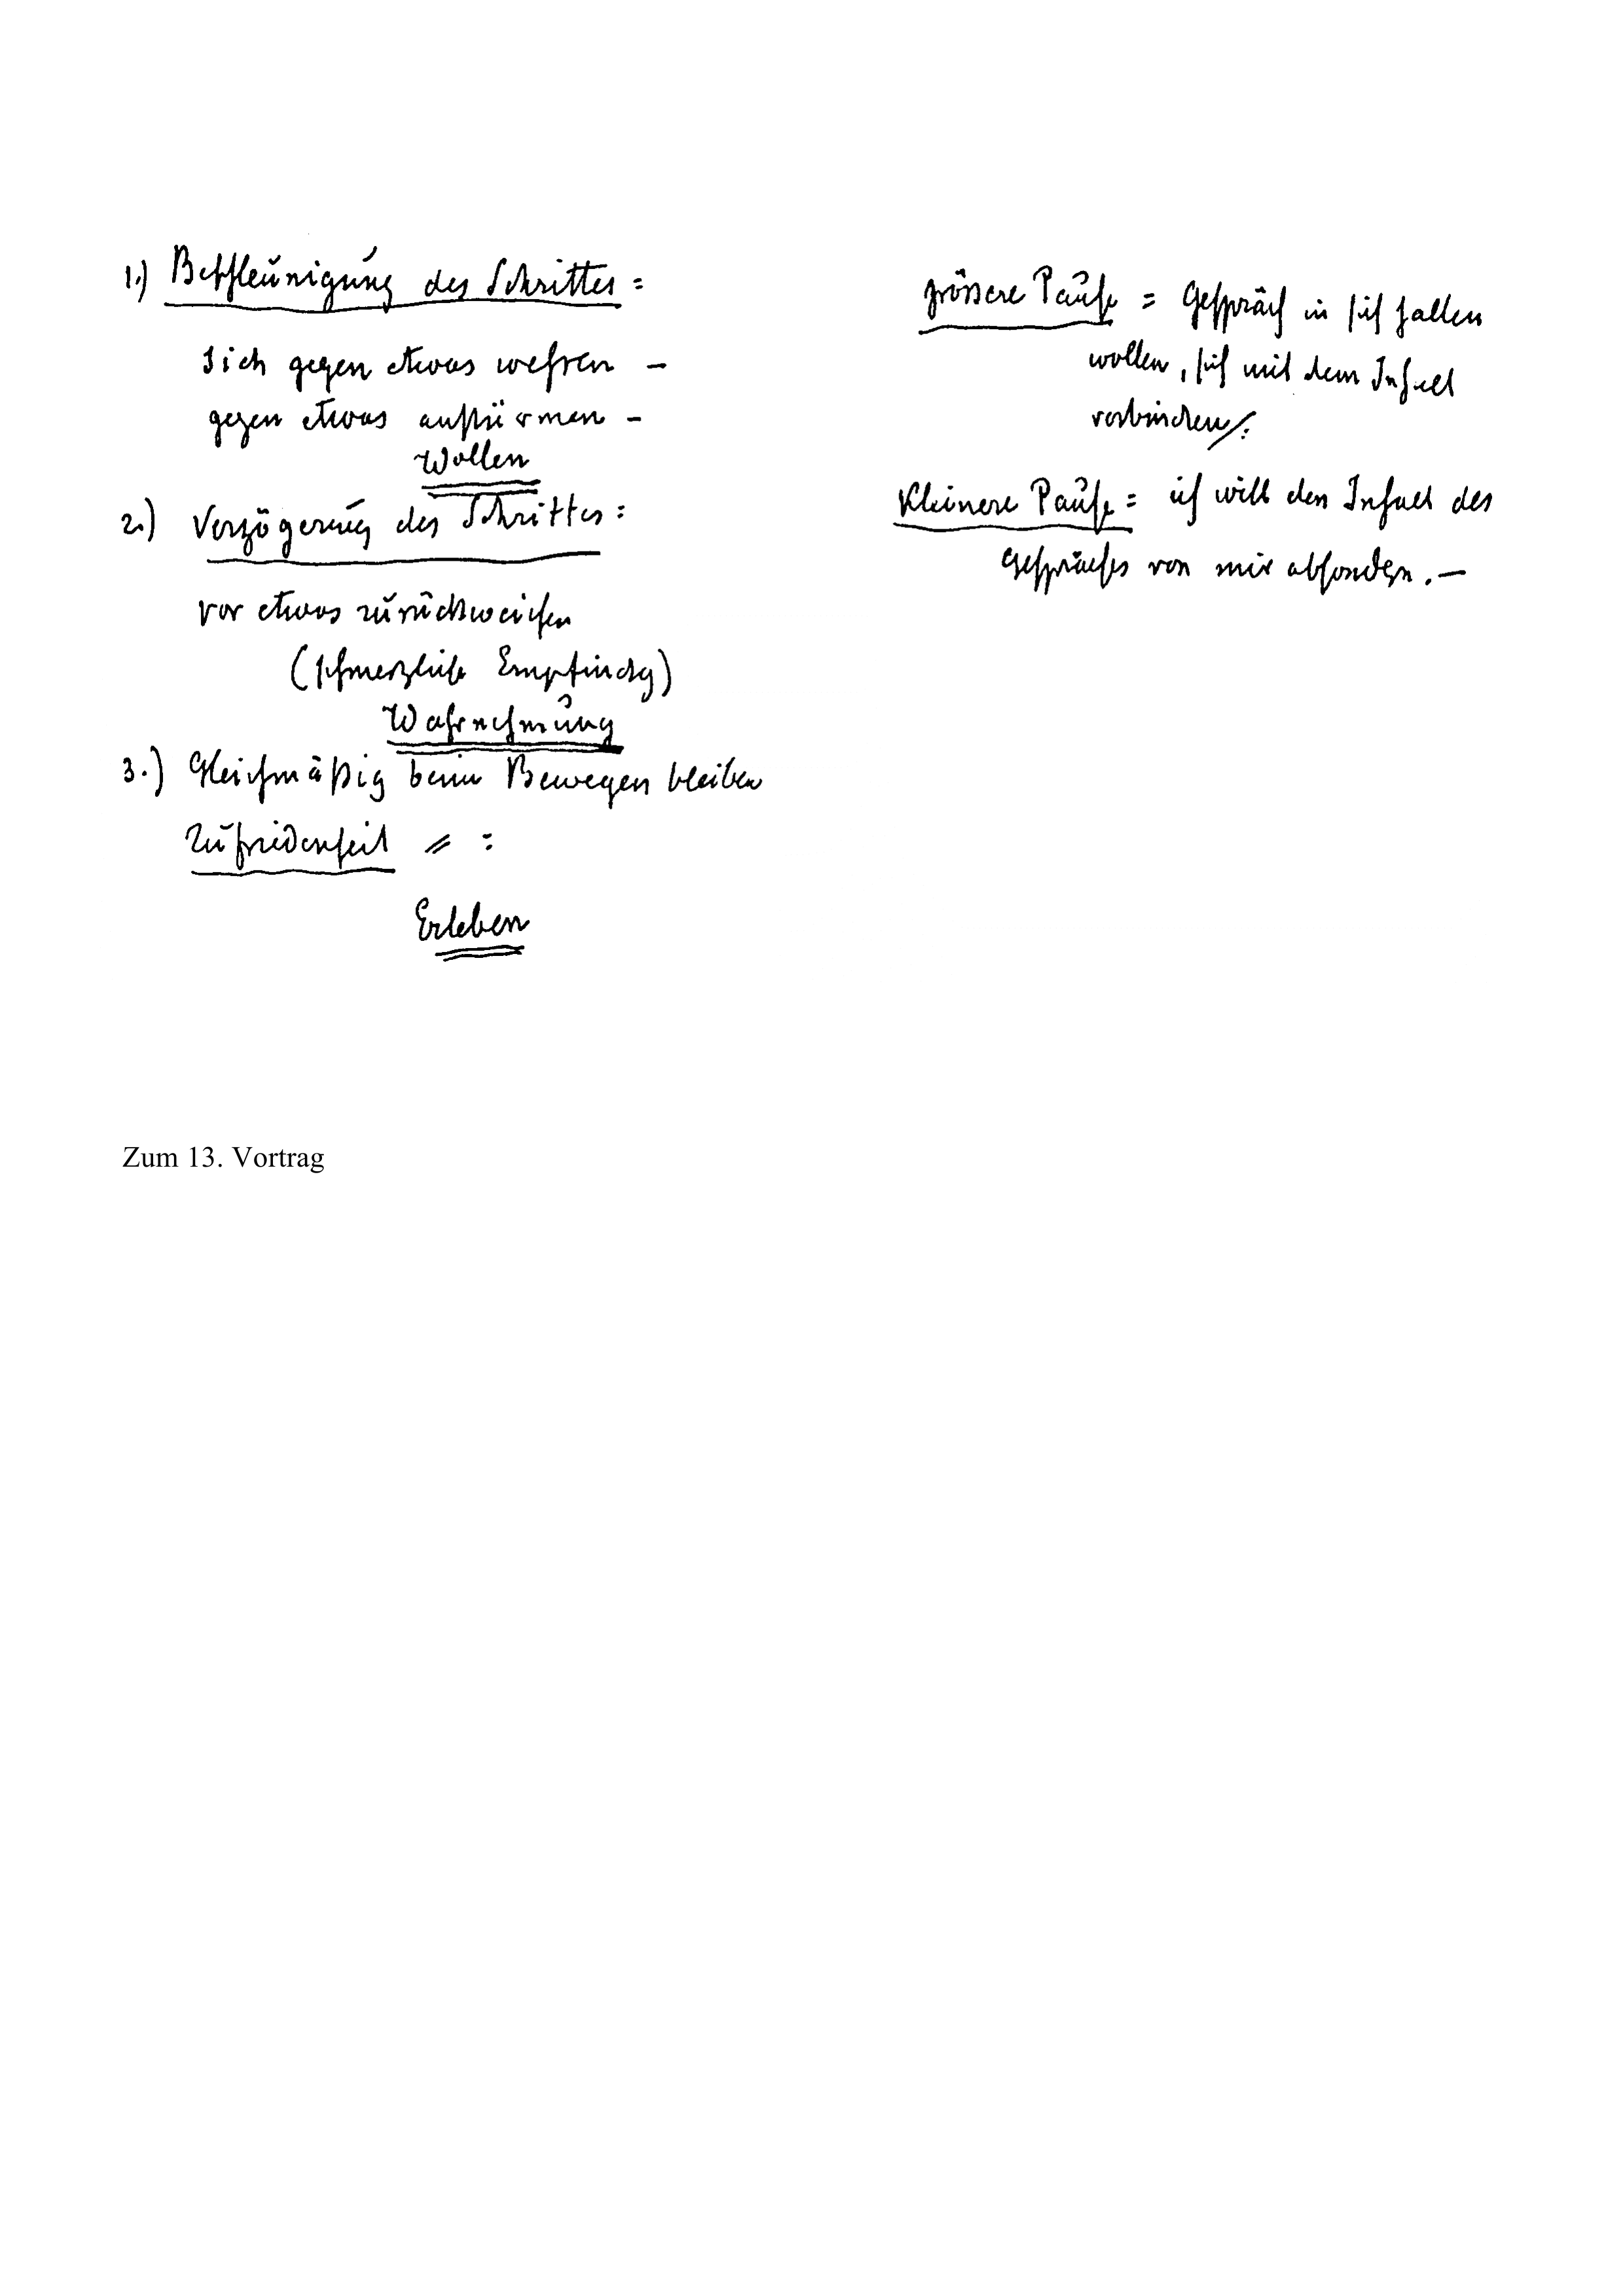 1.) Beschleunigung des Schrittes:
Sich gegen etwas wehren –
gegen etwas anstürmen –
Wollen
2.) Verzögerung des Schrittes:
vor etwas zurückweichen
(schmerzliche Empfindg)
Wahrnehmung
3.) Gleichmäßig beim Bewegen bleiben
Zufriedenheit = :
Erleben
grössere Pause = Gespräch in sich halten
wollen, sich mit dem Inhalt
verbinden/:
Kleinere Pause = ich will den Inhalt des
Gespräches von mir absondern. –
Zum 13. Vortrag